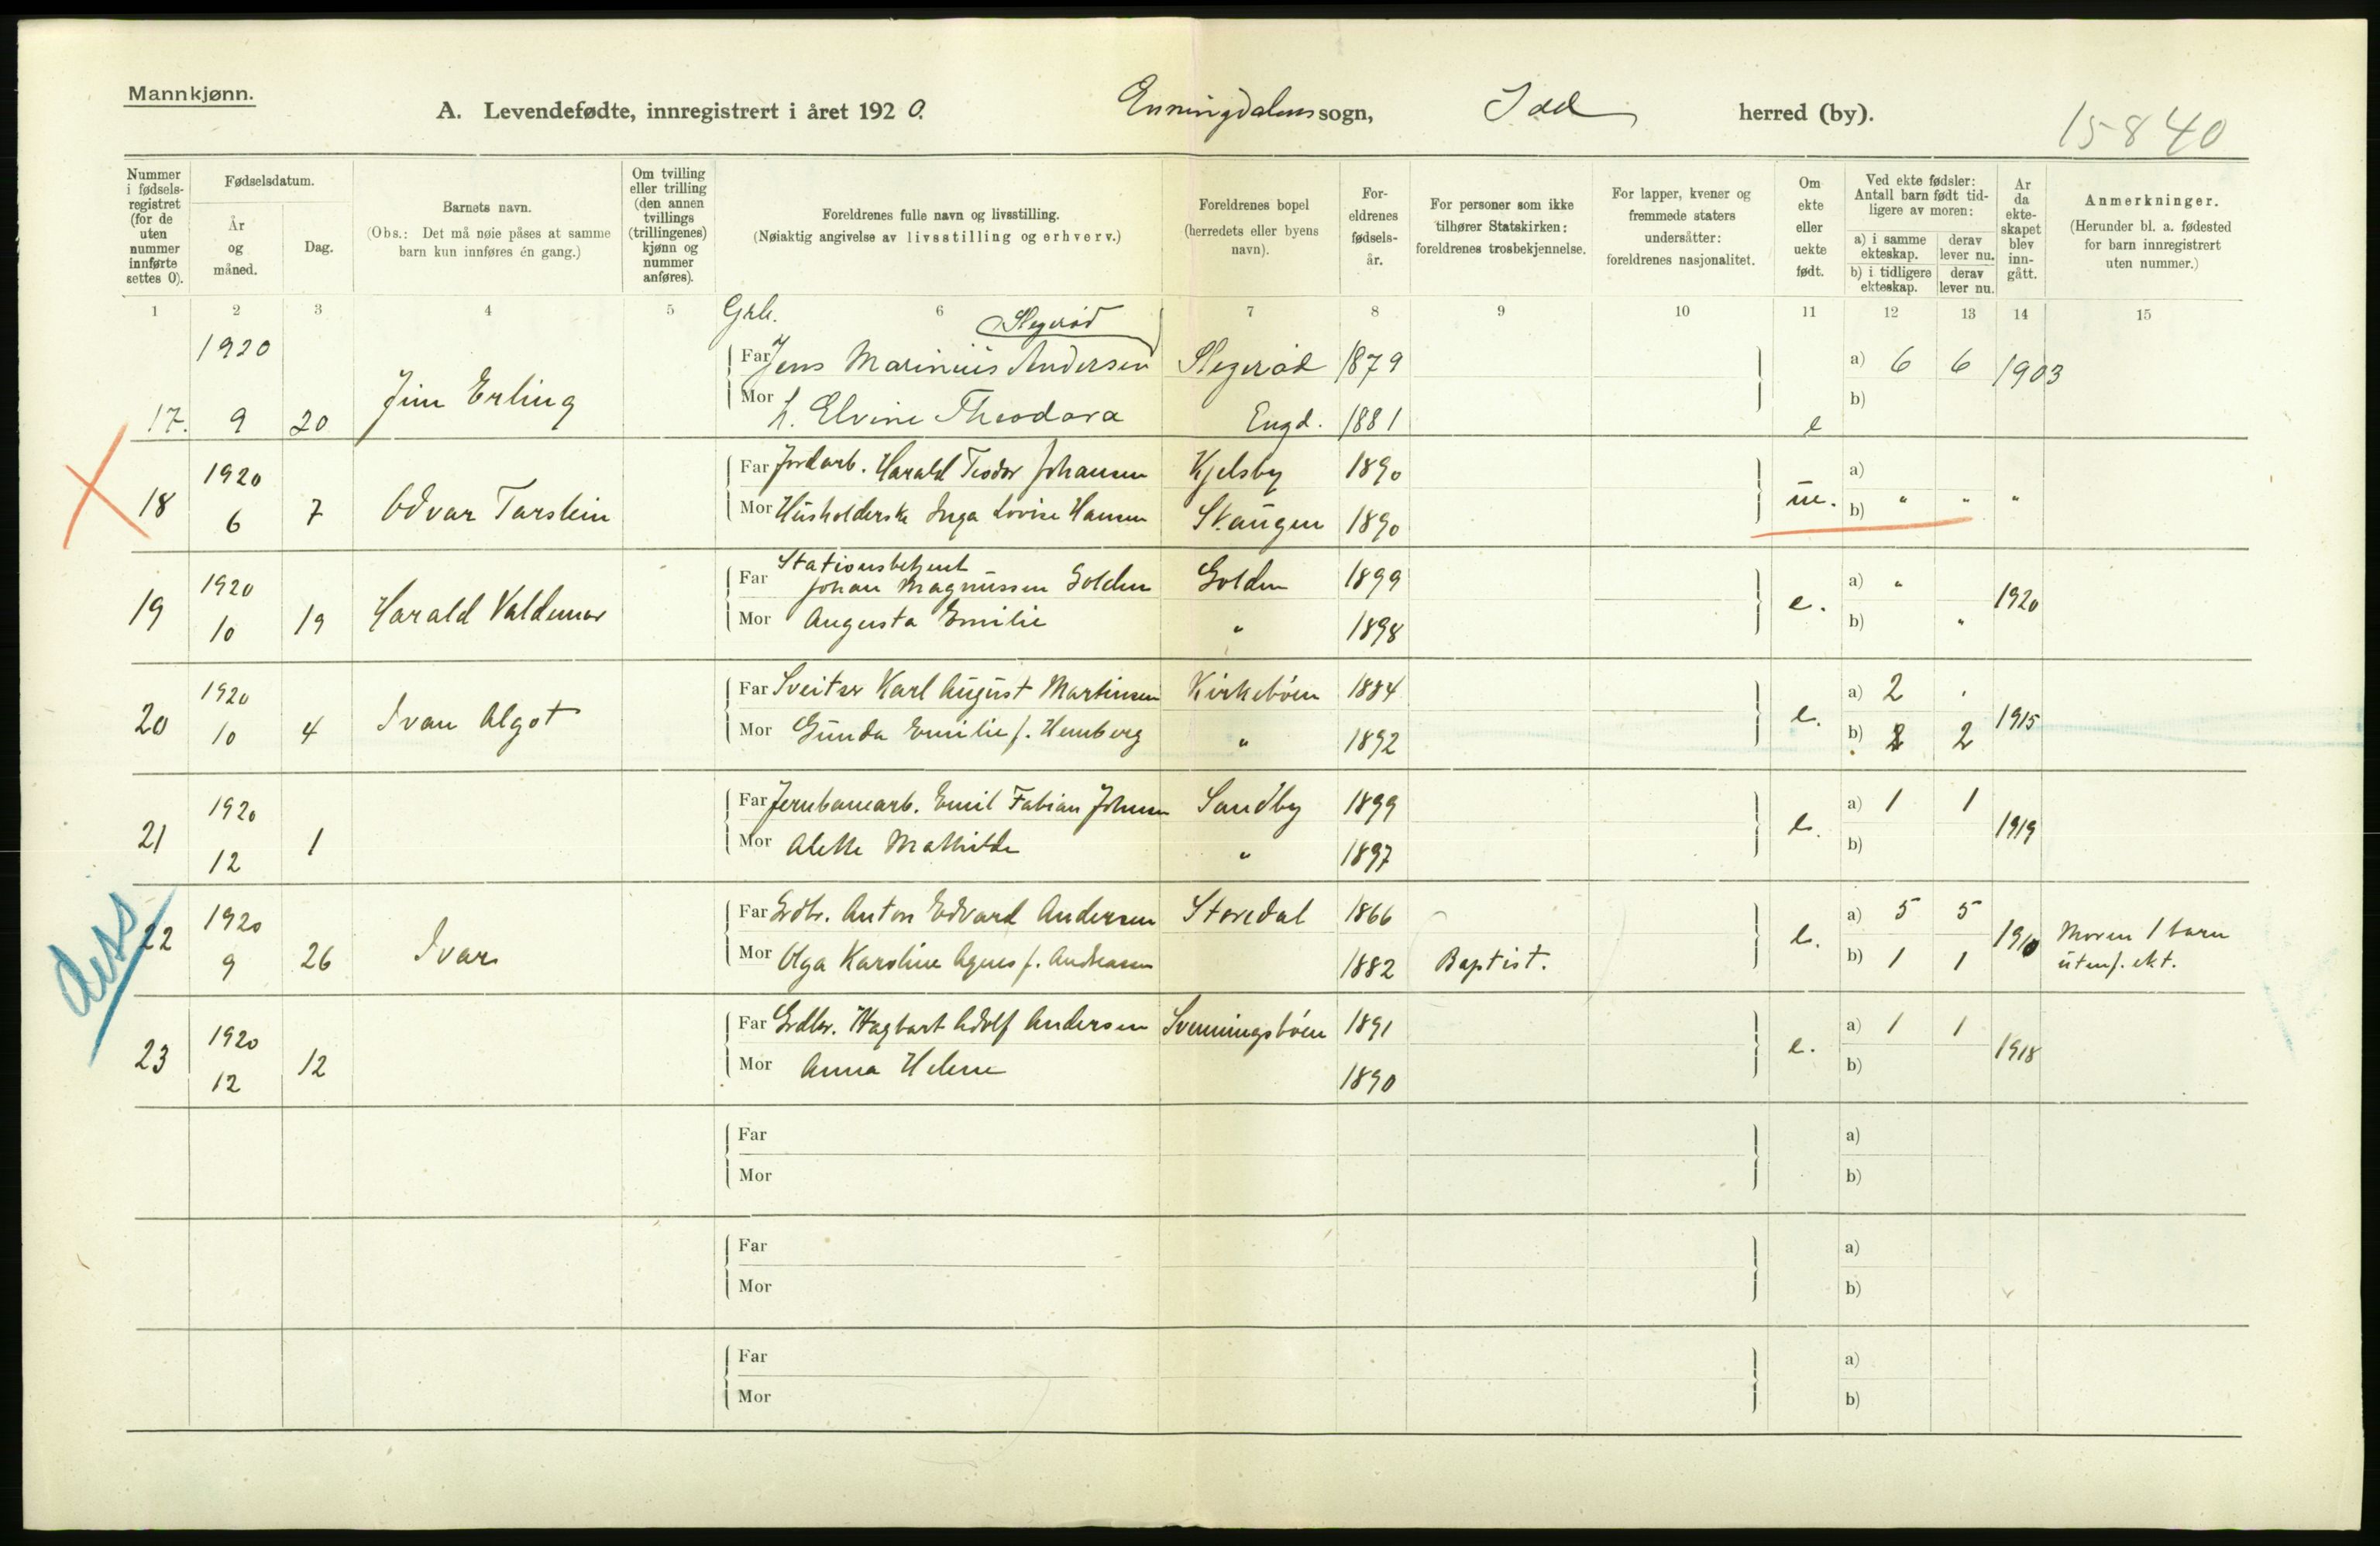 Mannkjønn.
A. Levendefødte, innregistrert i året 1920. Enningdalens sogn, Idd herred (by).
15840
Nummer i fødselsregistret (for de uten nummer innførte settes 0).
Fødselsdatum.
År og måned.
Dag.
Barnets navn.
(Obs.: Det må nøie påses at samme barn kun innføres én gang.)
Om tvilling eller trilling (den annen tvillings (trillingenes) kjønn og nummer anføres).
Foreldrenes fulle navn og livsstilling.
(Nøiaktig angivelse av livsstilling og erhverv.)
Foreldrenes bopel (herredets eller byens navn).
Foreldrenes fødselsår.
For personer som ikke tilhører Statskirken: foreldrenes trosbekjennelse.
For lapper, kvener og fremmede staters undersåtter: foreldrenes nasjonalitet.
Om ekte eller uekte født.
Ved ekte fødsler: Antall barn født tidligere av moren:
a) i samme ekteskap. derav lever nu.
b) i tidligere ekteskap. derav lever nu.
År da ekteskapet blev inngått.
Anmerkninger.
(Herunder bl. a. fødested for barn innregistrert uten nummer.)
1 2 3 4 5 6 7 8 9 10 11 12 13 14 15
Slegerød
17. 1920 9 20 Jim Erling
Far Jens Marinius Andersen Slegerød 1879 a) 6 6 1903
Mor h. Elvine Theodora Engd. 1881 e b)
18 1920 6 7 Odvar Tarstein
Far Jordarb. Harald Teodor Johansen Kjelsby 1890 a)
Mor Husholderske Inga Lovise Hansen Skaugen 1890 ue. b) " " "
19 1920 10 19 Harald Valdemar
Far Stationsbetjent
Johan Magnussen Golden Golden 1899 e. a) " 1920
Mor Augusta Emilie " 1898 b) "
20 1920 10 4 Ivan Algot
Far Sveitser Karl August Martinsen Kirkebøen 1884 e. a) 2 1915
Mor Gunda Emilie f. Hemberg " 1892 b) 2 2
21 1920 12 1
Far Jernbanearb. Emil Fabian Johnsen Sandby 1899 e. a) 1 1 1919
Mor Alette Mathilde " 1897 b)
diss
22 1920 9 26 Ivar
Far Grdbr. Anton Edvard Andersen Storedal 1866 e. a) 5 5 1910 Moren 1 barn
Mor Olga Karoline Agnes f. Andreasen 1882 Baptist. b) 1 1 utenf. ekt.
23 1920 12 12
Far Grdbr. Hagbart Adolf Andersen Svenningsbøen 1891 e. a) 1 1 1918
Mor Anna Helene 1890 b)
Far a)
Mor b)
Far a)
Mor b)
Far a)
Mor b)